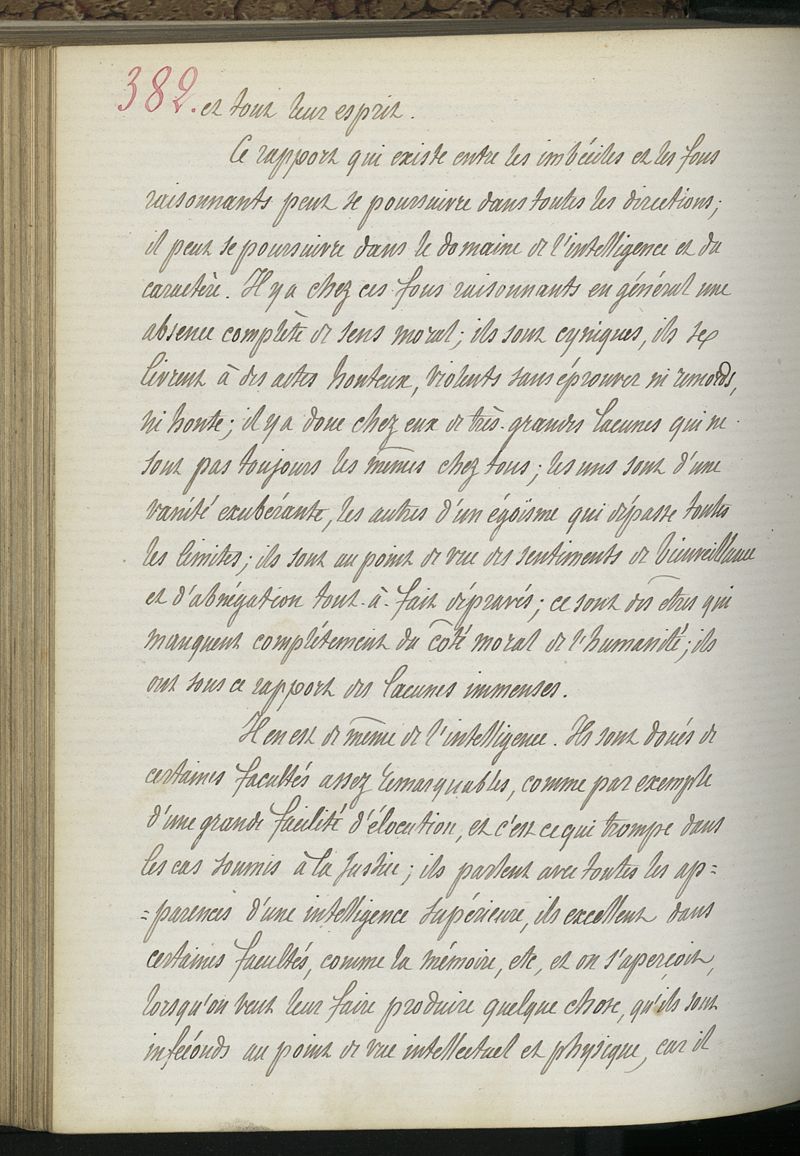 382. et tout leur esprit.
Ce rapport qui existe entre les imbéciles et les fous
raisonnants peut se poursuivre dans toutes les directions;
il peut se poursuivre dans le domaine de l'intelligence et du
caractère. Il y a chez ces fous raisonnants en général une
absence complète de sens moral; ils sont cyniques, ils se
livrent à des actes honteux, violents sans éprouver ni remords,
ni honte; il y a donc chez eux de très-grandes lacunes qui ne
sont pas toujours les mêmes chez tous; les uns sont d'une
vanité exubérante, les autres d'un égoïsme qui dépasse toutes
les limites; ils sont au point de vue des sentiments de bienveillance
et d'abnégation tout-à-fait dépravés; ce sont des êtres qui
manquent complétement du côté moral de l'humanité; ils
ont sous ce rapport des lacunes immenses.
Il en est de même de l'intelligence. Ils sont doués de
certaines facultés assez remarquables, comme par exemple
d'une grande facilité d'élocution, et c'est ce qui trompe dans
les cas soumis à la Justice; ils parlent avec toutes les ap=
=parences d'une intelligence supérieure, ils excellent dans
certaines facultés, comme la mémoire, etc, et on s'aperçoit,
lorsqu'on veut leur faire produire quelque chose, qu'ils sont
inféconds au point de vue intellectuel et physique, car il